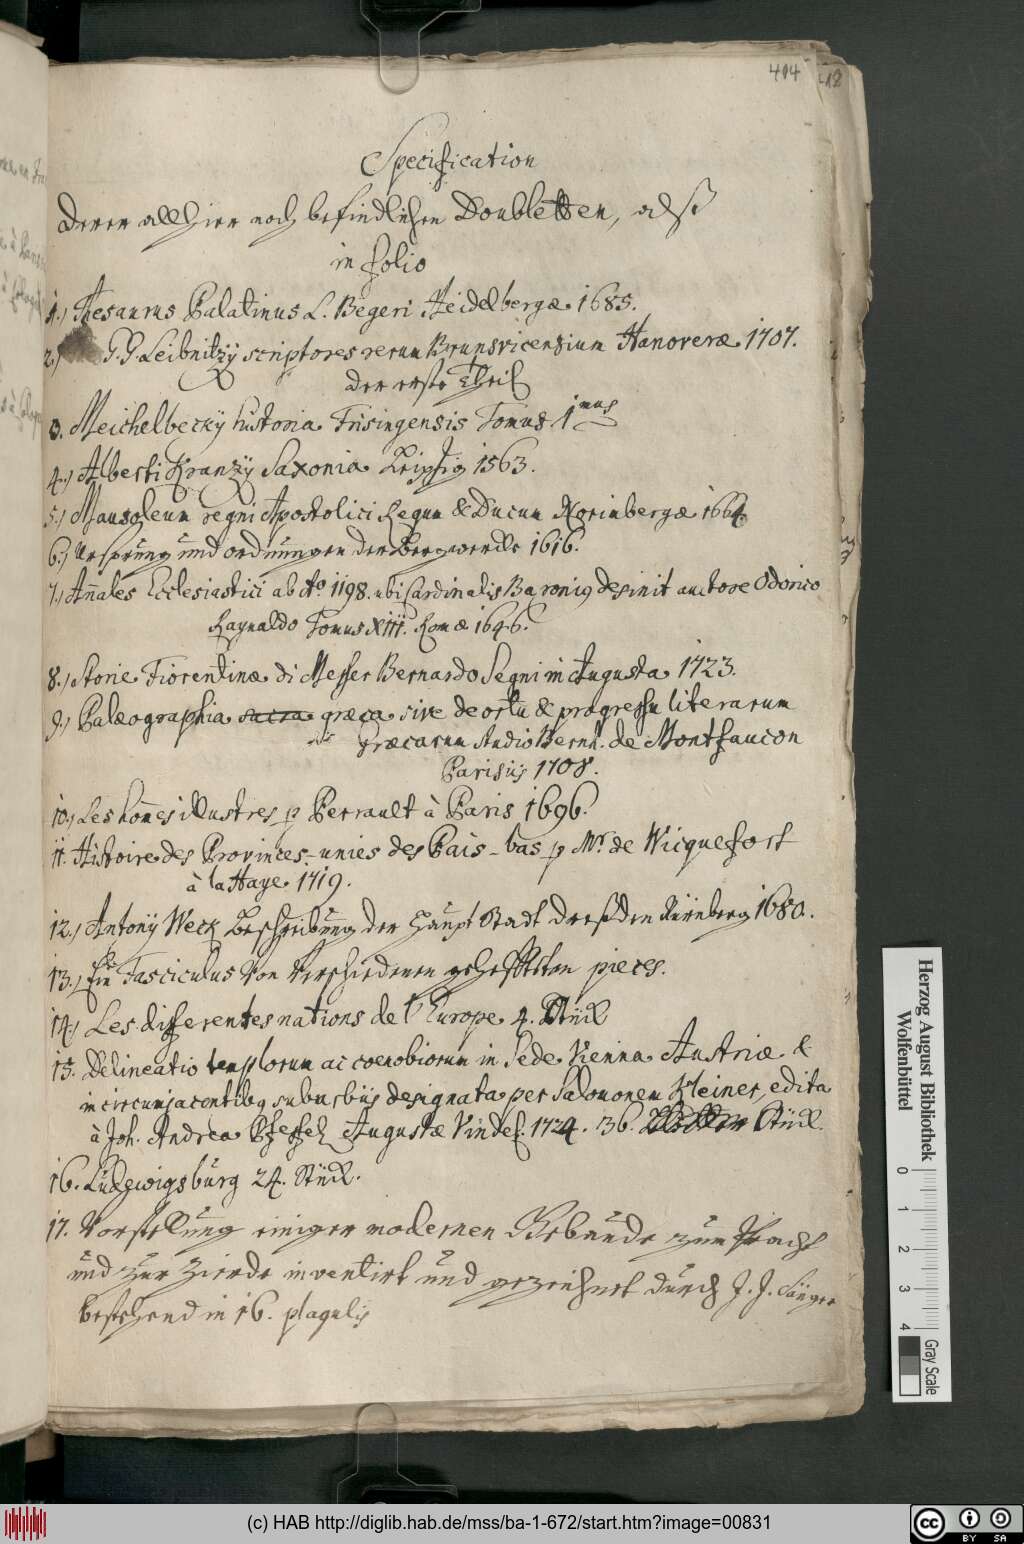 414 418
Specification
Derer allhier noch befindlichen Doubletten, alß
in folio
1.) Thesaurus Palatinus L. Begeri Heidelbergæ 1685.
2.) G. G. Leibnitzÿ scriptores rerum Brunsvicensium Hanoveræ 1707.
der erste Theil
3. Meichelbecky historia Frisingensis Tomus 1mus
4.) Alberti Kranzÿ Saxonia Leipzig 1563.
5.) Mausoleum regni Apostolici Regum & Ducum Norimbergæ 1664
6.) Ursprung und ordnungen der Bergwercke 1616.
7.) Anales Ecclesiastici ab Ao. 1198. ubi Cardinalis Baronius desinit auctore Odorico
Raynaldo Tomus XIII. Romæ 1646.
8.) Storie Fiorentinæ di Messer Bernardo Segni in Augusta 1723.
9.) Palæographia sacra græca sive de ortu & progressu literarum
græcarum studio Bernh. de Montfaucon
Parisiis 1708.
10.) Les homes illustres p Perrault à Paris 1696.
11. Histoire des Provinces-unies des Pais-bas p Mr. de Wicquefort
à la Haye 1719.
12.) Antonÿ Weck Beschreibung der Haupt Stadt Dreßden Nürnberg 1680.
13.) Ein Fasciculus von verschiedenen gehefftetten pieces.
14.) Les differentes nations de l'Europe 4. Stück
15. Delineatio templorum ac coenobiorum in Sede Vienna Austriæ &
in circumjacentibq suburbiis designata per Salomonem Kleiner, edita
à Joh. Andrea Pfeffel Augustæ Vindel. 1724. 36. Stück.
16. Ludewigsburg 24. Stück.
17. Vorstellung einiger modernen Gebäude zum Pracht
und zur Zierde inventirt und gezeichnet durch J. J. Sänger
bestehend in 16. plagulis
Herzog August Bibliothek
Wolfenbüttel
0 1 2 3 4
Gray Scale
(c) HAB http://diglib.hab.de/mss/ba-1-672/start.htm?image=00831
cc BY SA